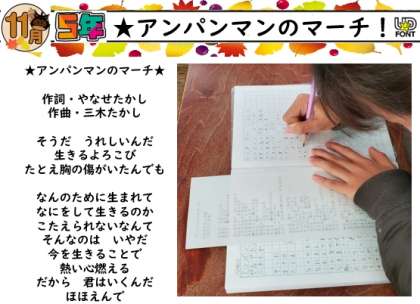 11月 5年 ★アンパンマンのマーチ！ UD FONT
★アンパンマンのマーチ★
作詞・やなせたかし
作曲・三木たかし
そうだ　うれしいんだ
生きるよろこび
たとえ胸の傷がいたんでも
なんのために生まれて
なにをして生きるのか
こたえられないなんて
そんなのは　いやだ
今を生きることで
熱い心燃える
だから　君はいくんだ
ほほえんで